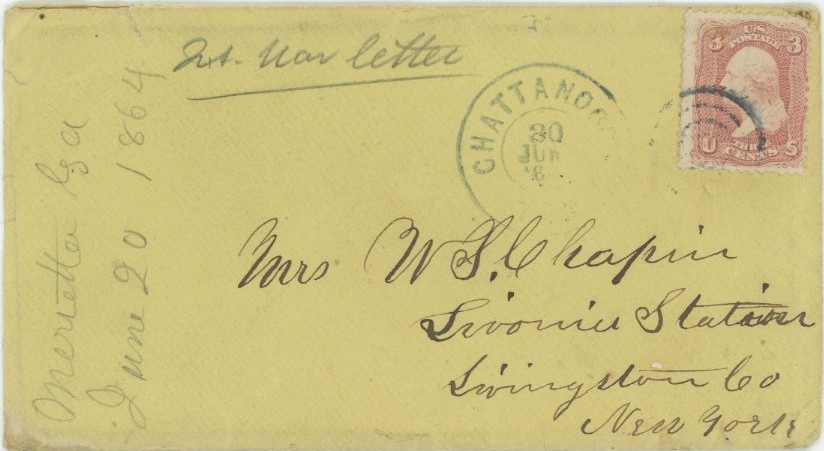 Marietta Ga
June 20 1864
Int. War letter
CHATTANOO
20
JUN
'6
U.S.
POSTAGE
3 3
U THREE S
CENTS
Mrs W S. Chapin
Livonia Station
Livingston Co
New York